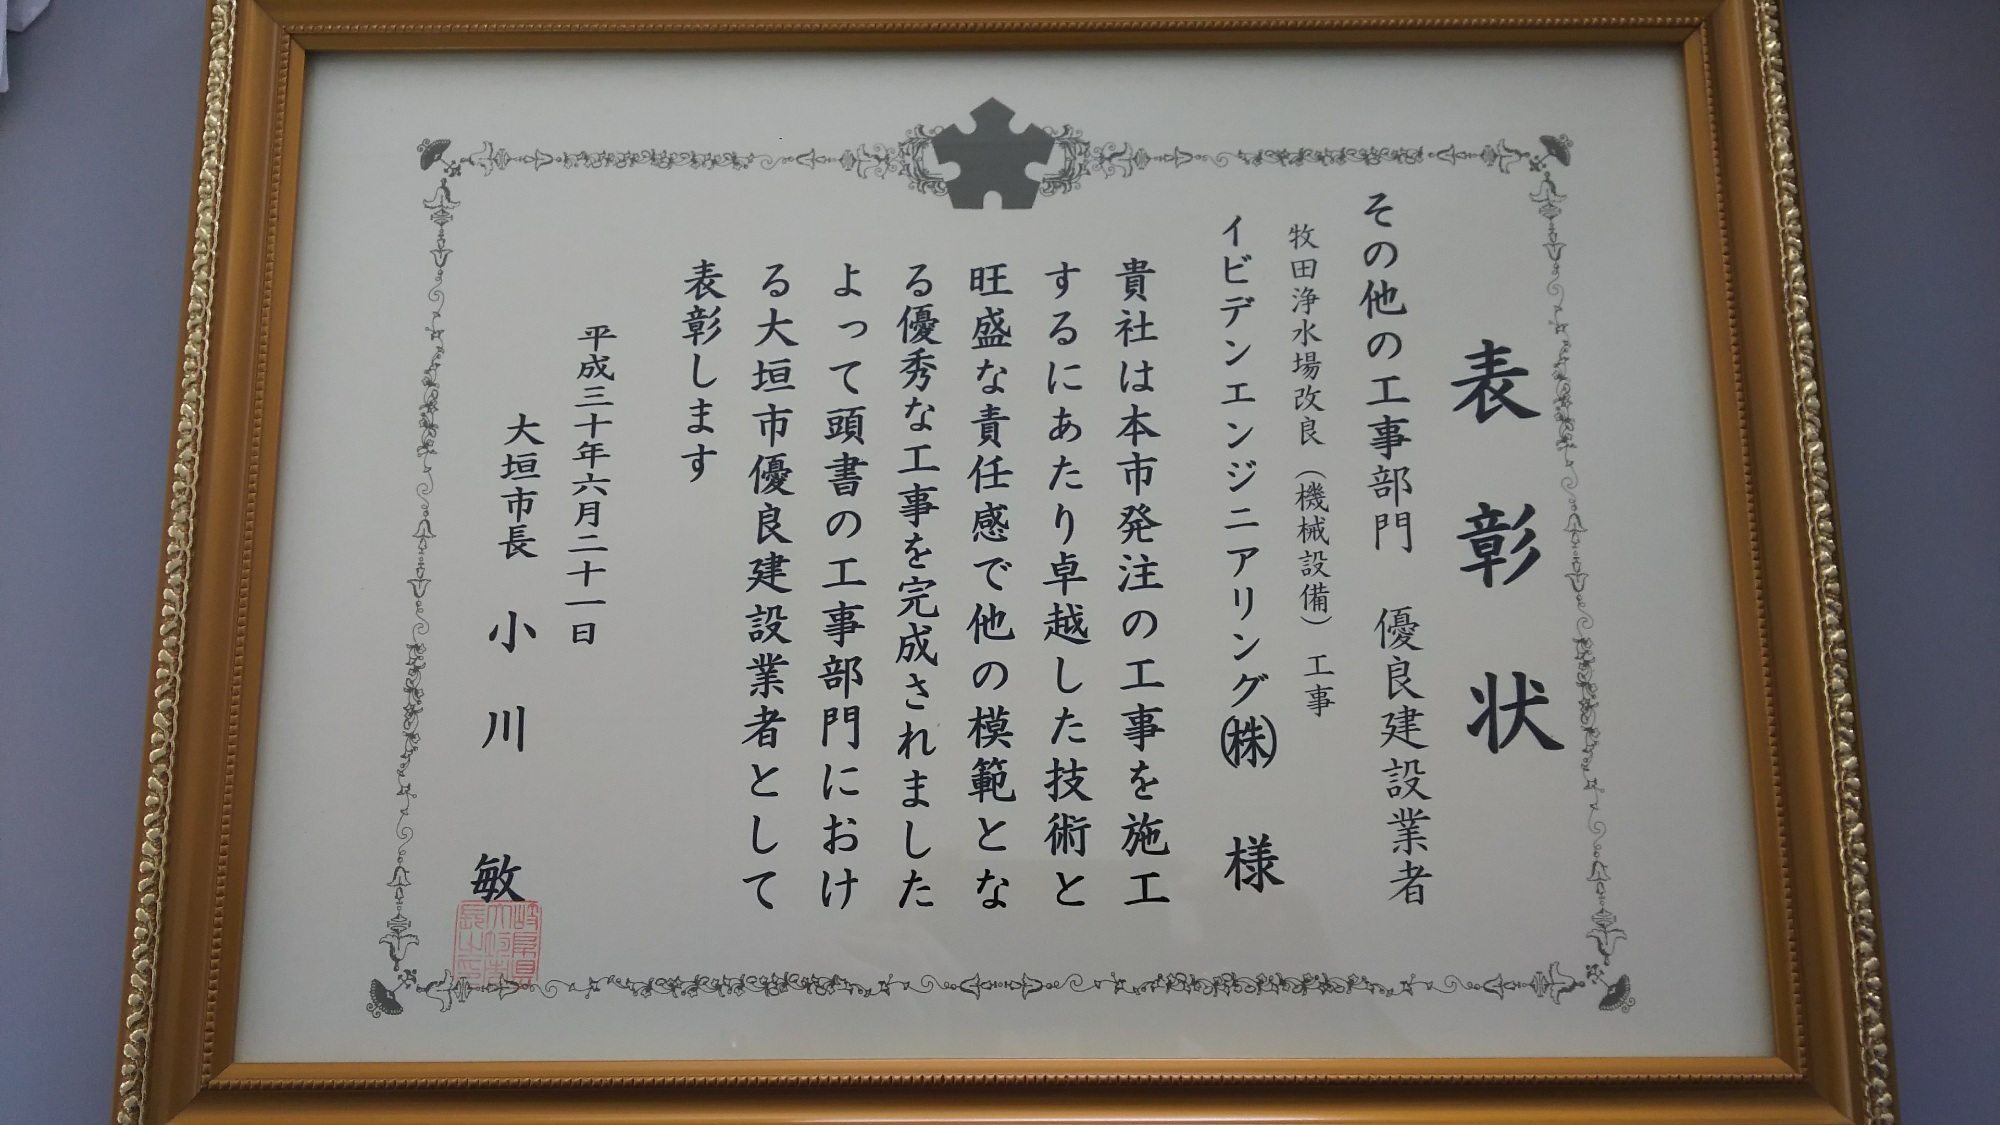 表彰状
その他の工事部門 優良建設業者
牧田浄水場改良（機械設備）工事
イビデンエンジニアリング㈱ 様
貴社は本市発注の工事を施工
するにあたり卓越した技術と
旺盛な責任感で他の模範とな
る優秀な工事を完成されました
よって頭書の工事部門におけ
る大垣市優良建設業者として
表彰します
平成三十年六月二十一日
大垣市長 小川 敏
岐阜県
大垣市
長之印